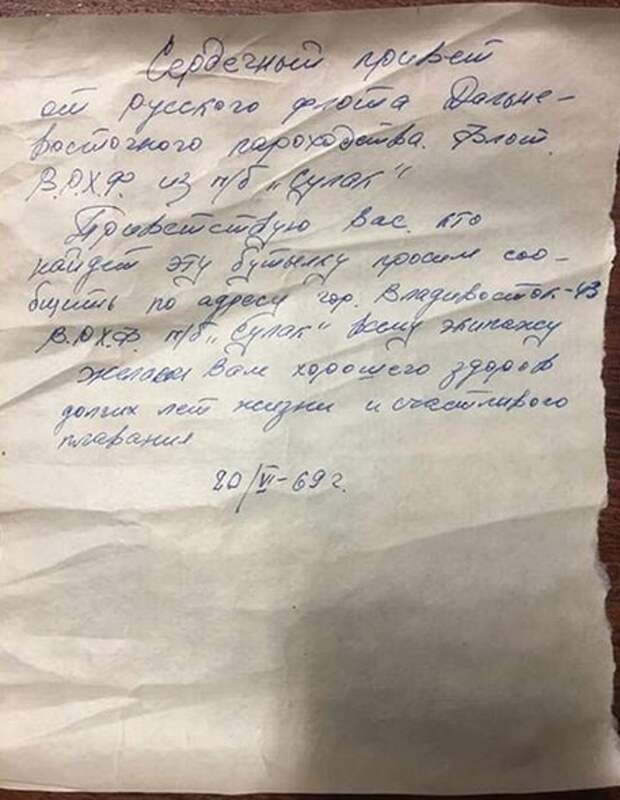 Сердечный привет
от русского флота Дальне-
восточного пароходства. Флот.
В.Р.Х.Ф. из п/б „Сулак"
Приветствую Вас. кто
найдет эту бутылку просим соо-
бщить по адресу гор. Владивосток-43
В.Р.Х.Ф. п/б „Сулак" всему экипажу
желаем Вам хорошего здоров
долгих лет жизни и счастливого
плавания
20/VI-69 г.